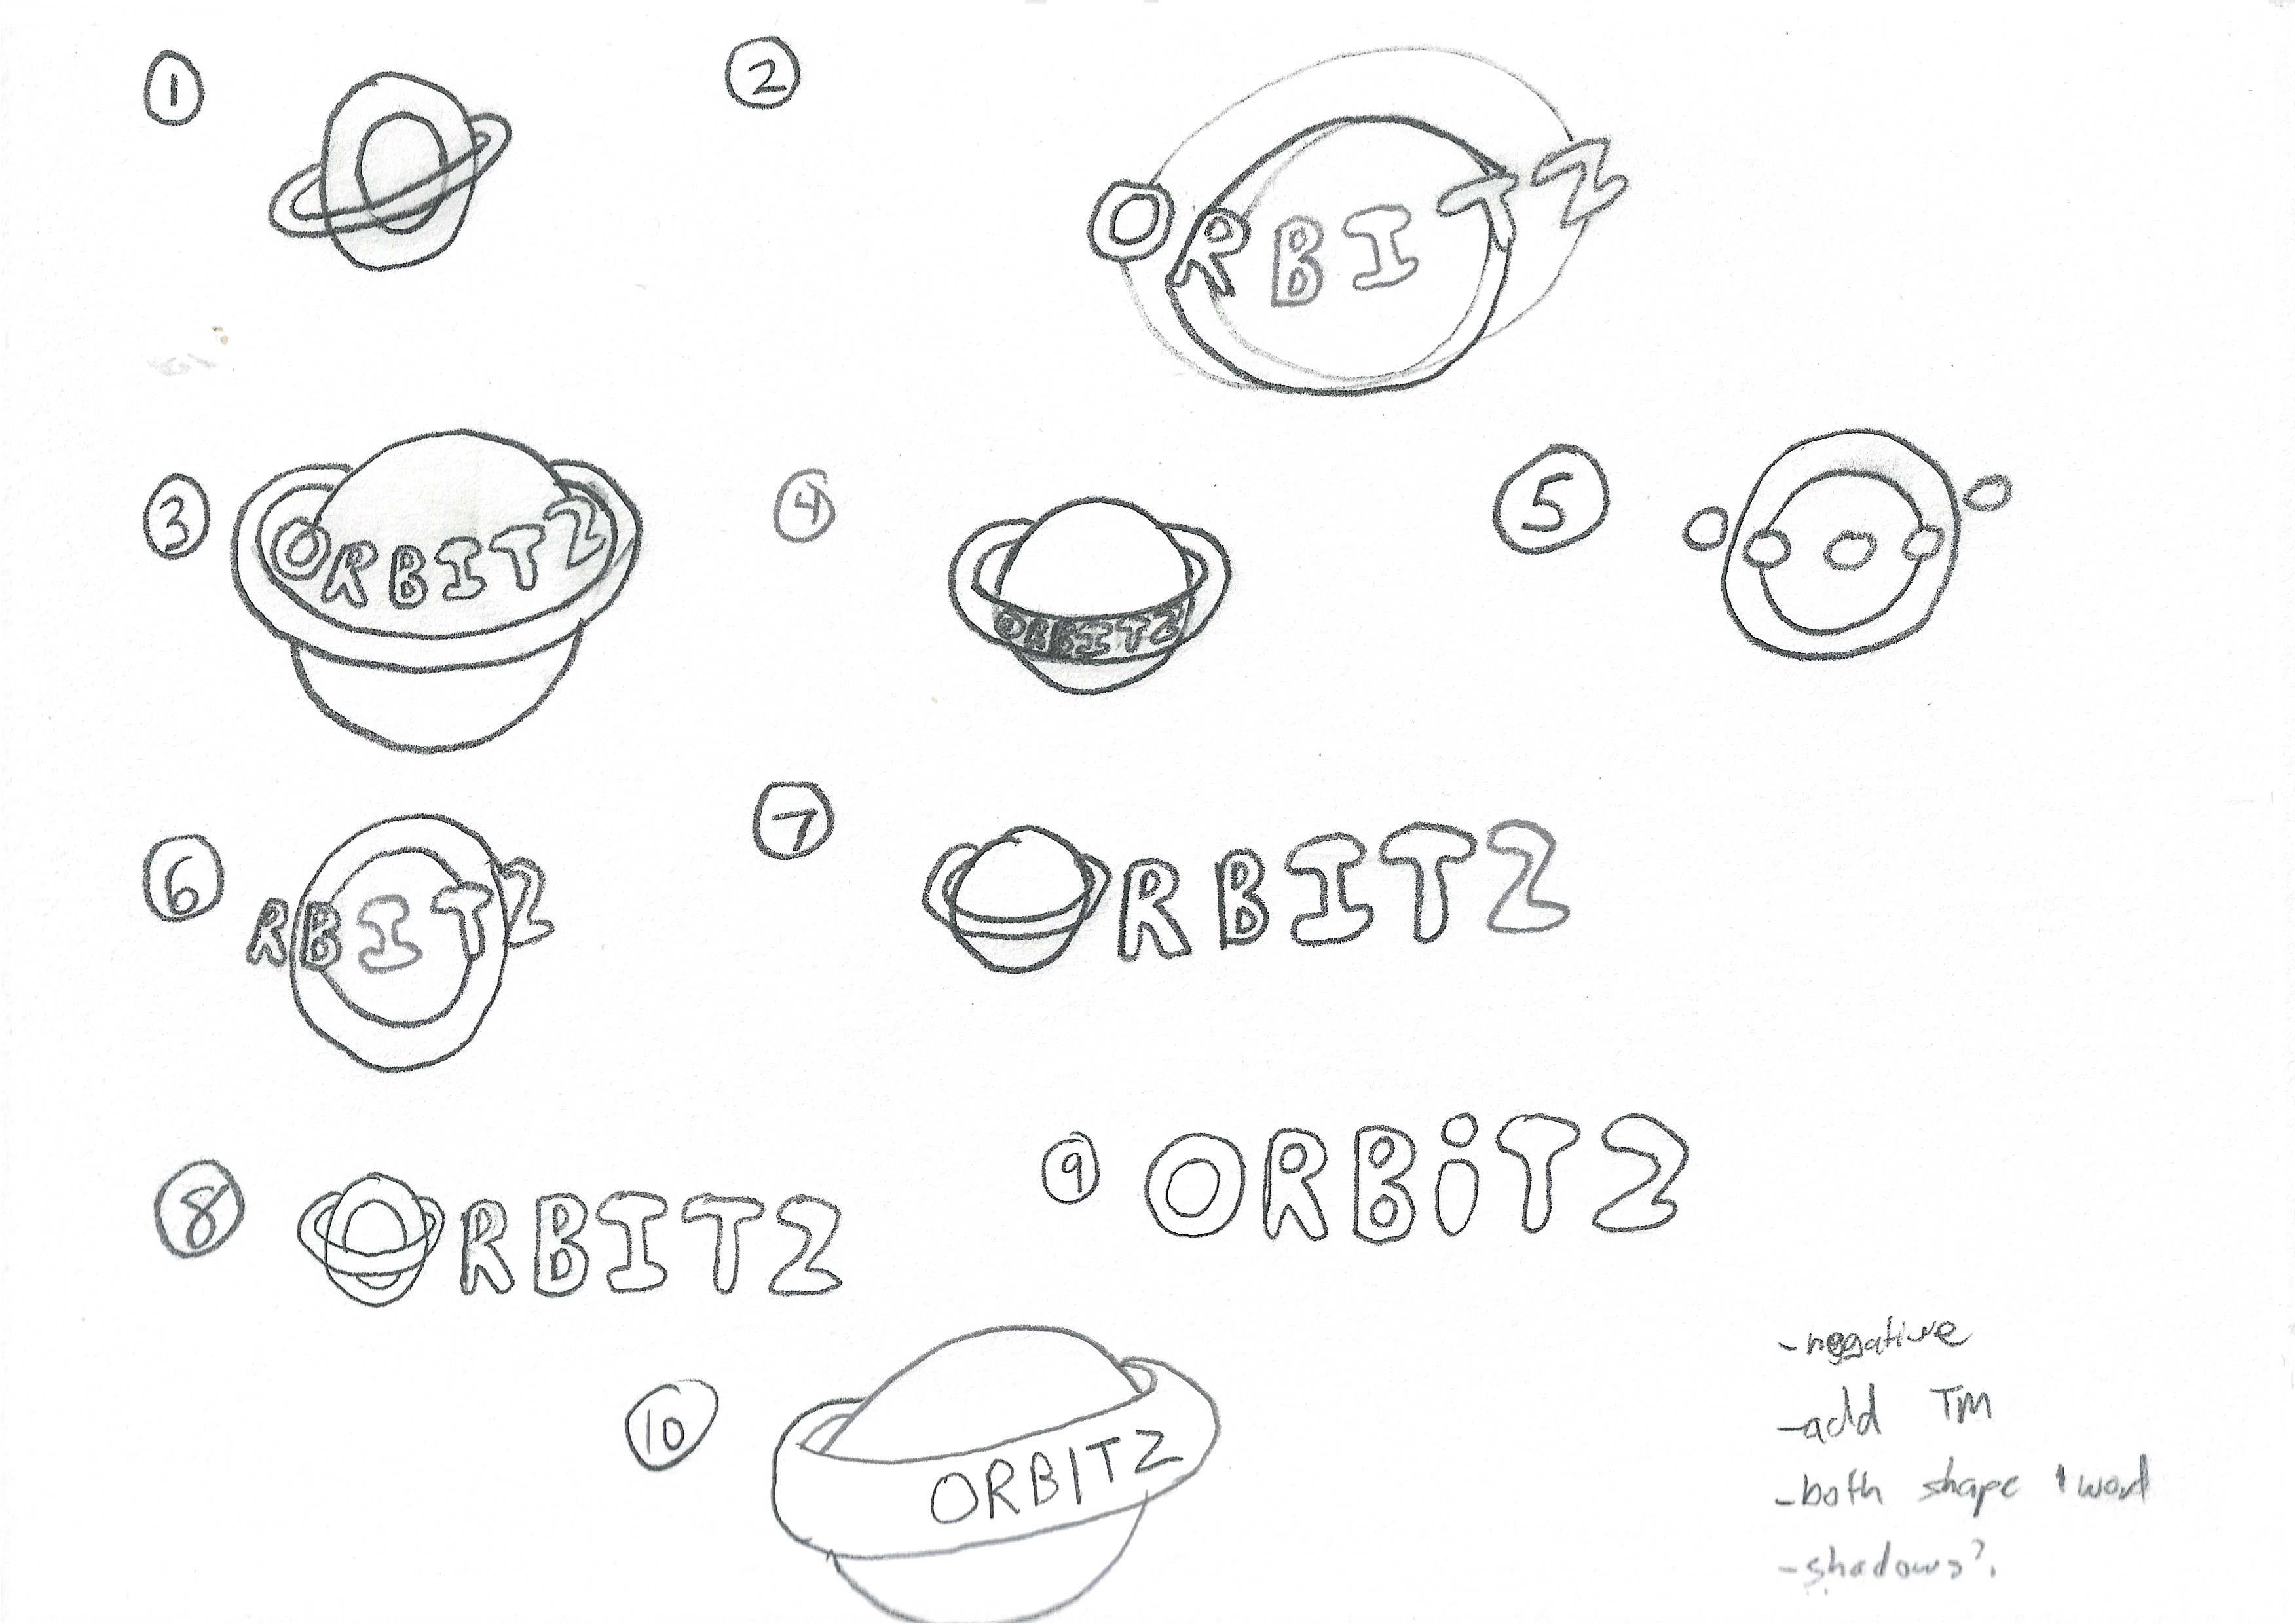 1
2
ORBITZ
3
ORBITZ
4
ORBITZ
5
6
RBITZ
7
RBITZ
8
ORBITZ
9
ORBiTZ
10
ORBITZ
-negative
-add TM
-both shape & word
-shadows?